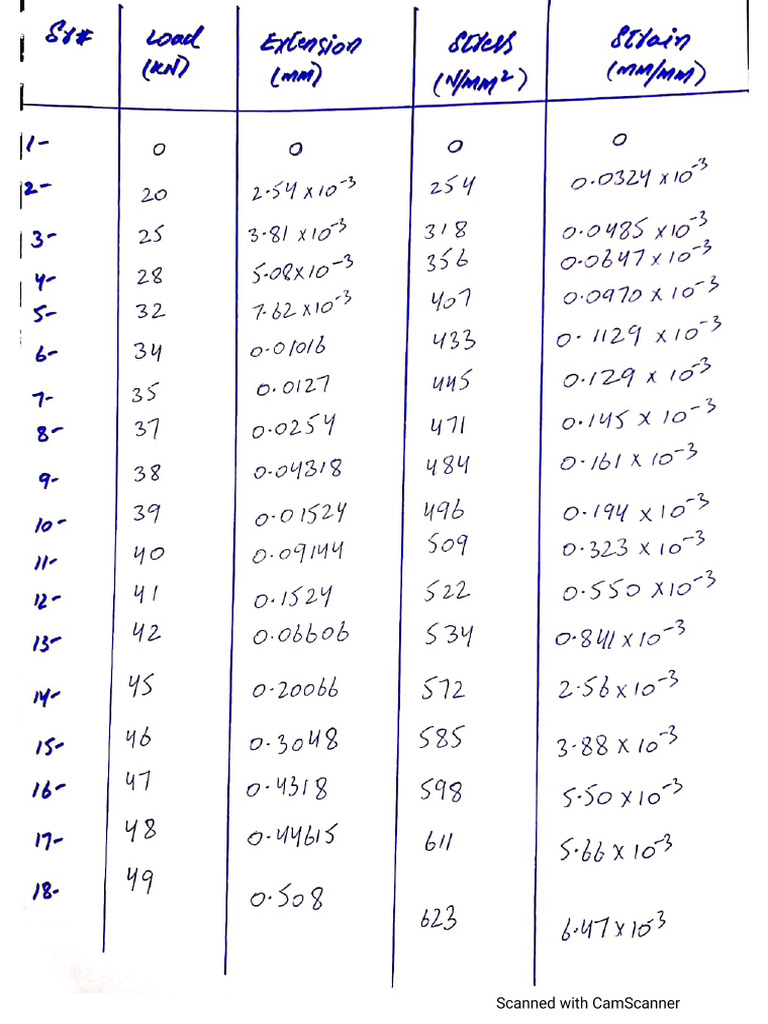 Sr# Load Extension Stress Strain
(KN) (MM) (N/MM²) (MM/MM)
1- 0 0 0 0
2- 20 2.54 x 10⁻³ 254 0.0324 x 10⁻³
3- 25 3.81 x 10⁻³ 318 0.0485 x 10⁻³
4- 28 5.08 x 10⁻³ 356 0.0647 x 10⁻³
5- 32 7.62 x 10⁻³ 407 0.0970 x 10⁻³
6- 34 0.01016 433 0.1129 x 10⁻³
7- 35 0.0127 445 0.129 x 10⁻³
8- 37 0.0254 471 0.145 x 10⁻³
9- 38 0.04318 484 0.161 x 10⁻³
10- 39 0.01524 496 0.194 x 10⁻³
11- 40 0.09144 509 0.323 x 10⁻³
12- 41 0.1524 522 0.550 x 10⁻³
13- 42 0.06606 534 0.841 x 10⁻³
14- 45 0.20066 572 2.56 x 10⁻³
15- 46 0.3048 585 3.88 x 10⁻³
16- 47 0.4318 598 5.50 x 10⁻³
17- 48 0.44615 611 5.66 x 10⁻³
18- 49 0.508 623 6.47 x 10⁻³
Scanned with CamScanner